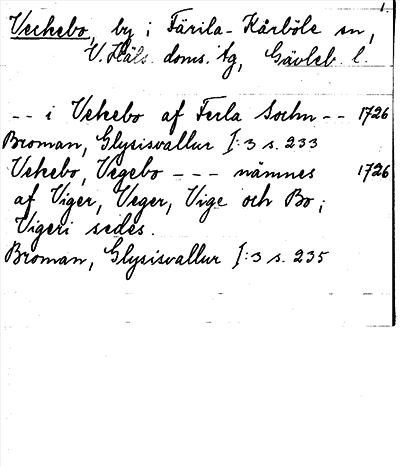 1.
Veckebo, by i Färila-Kårböle sn,
V. Häls. doms. tg, Gävleb. l.
-- i Vekebo af Ferla Sochn -- 1726
Broman, Glysisvallur I:3 s. 233
Vekebo, Vegebo --- nämnes 1726
af Viger, Veger, Vige och Bo;
Vigeri sedes.
Broman, Glysisvallur I:3 s. 235